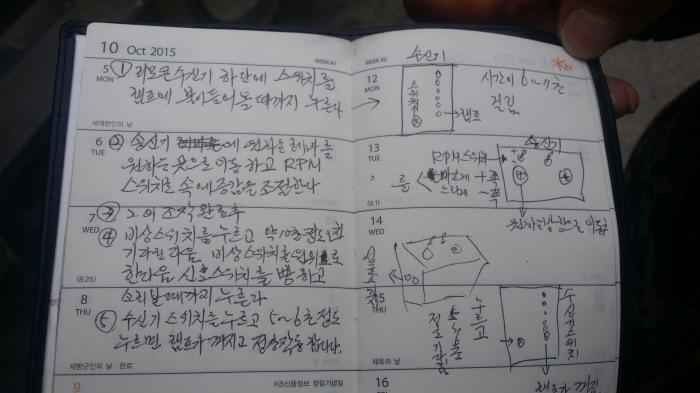 10 Oct 2015
WEEK #2
5
MON
① 리모콘수신기 하단에 스위치를
램프에 불이들어올때까지 누른다
세계한인의 날
6
TUE
② 송신기 에 원하는 레바를
원하는 곳으로 이동하고 RPM
스위치로 속에증감을 조절한다
7
WED
③ 2의 조작완료후
④ 비상스위치를 누르고 약10초정도
기다린다음 비상스위치를 원위로
한다음 신호스위치를 빵하고
(8.25)
8
THU
소리날때까지 누른다
⑤ 수신기 스위치를누르고 5~6초정도
누르면 램프가 꺼지고 정상작동합니다.
재향군인의 날 · 한로
9
KB신용정보 창립기념일
WEEK #2
수신기
12
MON
스위치
램프
시간이 6~7초
걸림
13
TUE
(9.1)
송신기
RPM스위치
빠르게 +쪽
느리게 -쪽
를
원하는방향으로 이동
14
WED
신호
15
THU
누르고
5~6초
정도기다림
수신기스위치
램프가 꺼짐
체육의 날
16